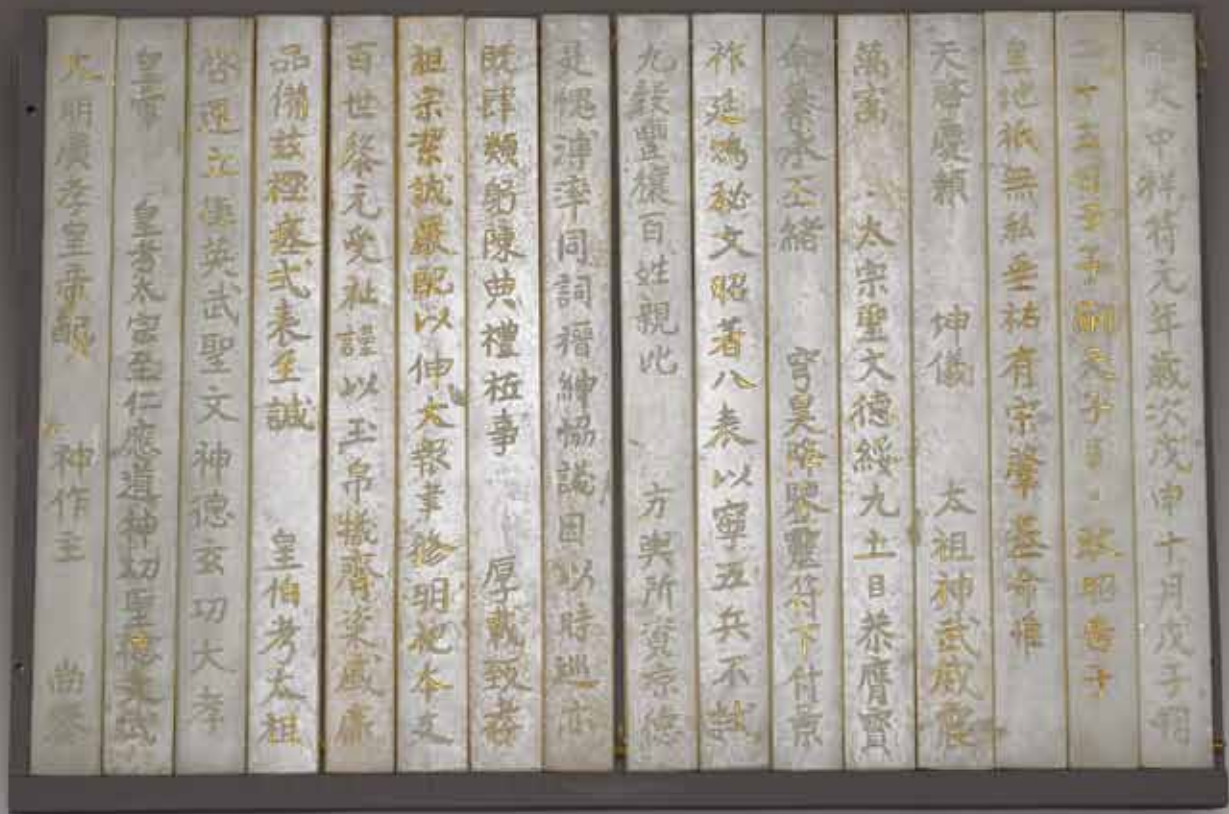 維大中祥符元年歲次戊申十月戊子朔
二十五日壬子嗣天子臣 敢昭告于
皇地祇無私垂祐有宋肇基命惟
天啓慶賴 坤儀 太祖神武威震
萬寓 太宗聖文德綏九土臣恭膺寶
命纂承丕緒 穹昊降祥靈符下付景
祚延鴻秘文昭著八表以寧五兵不試
九穀豐穰百姓親比 方輿所資涼德
是愧溥率同詞搢紳協議因以時巡亦
既肆類躬陳典禮祗事 厚載致孝
祖宗潔誠嚴配以伸大報聿修明祀本支
百世黎元受祉謹以玉帛犧齊粢盛庶
品備兹禋瘞式表至誠 皇伯考太祖
啓運立極英武聖文神德玄功大孝
皇帝 皇考太宗至仁應道神功聖德文武
大明廣孝皇帝配 神作主 尚饗